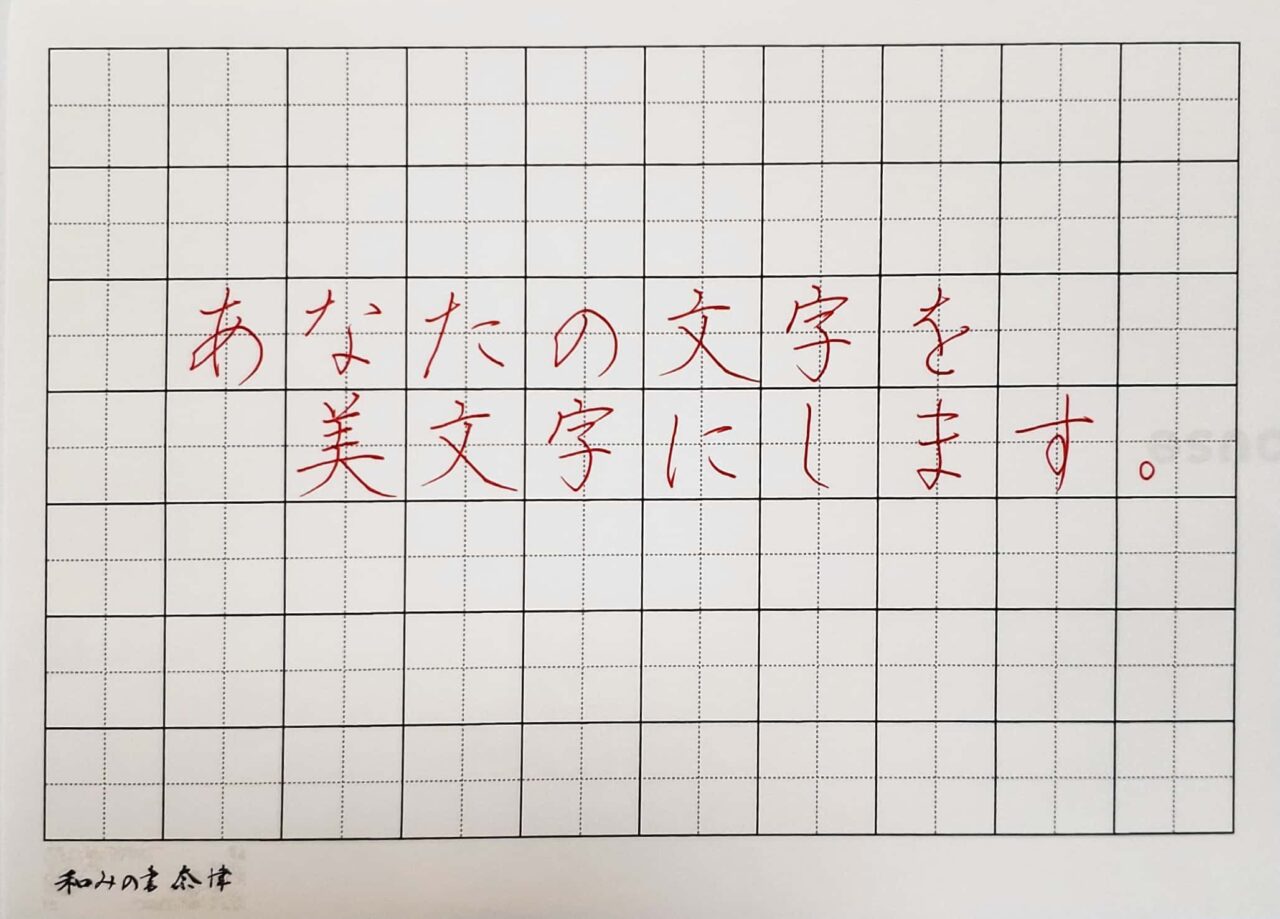 あなたの文字を
美文字にします。
和みの書 奈津